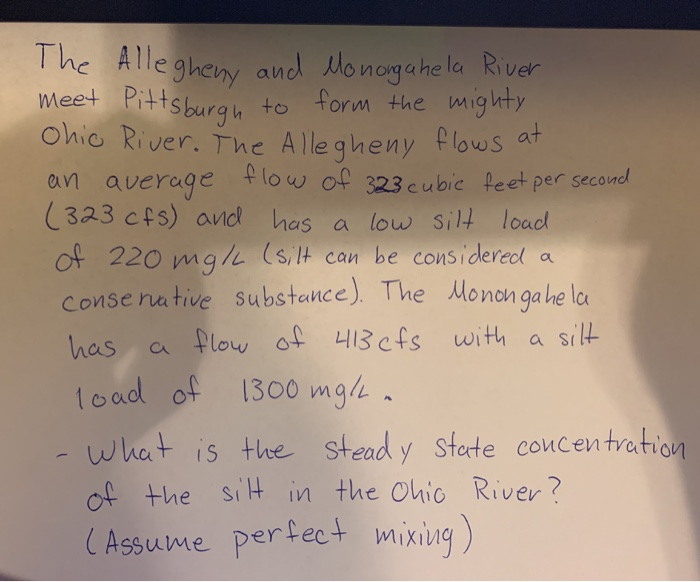 The Allegheny and Monongahela River
meet Pittsburgh to form the mighty
Ohio River. The Allegheny flows at
an average flow of 323 cubic feet per second
(323 cfs) and has a low silt load
of 220 mg/L (silt can be considered a
conservative substance). The Monongahela
has a flow of 413 cfs with a silt
load of 1300 mg/L.
- What is the steady state concentration
of the silt in the Ohio River?
(Assume perfect mixing)